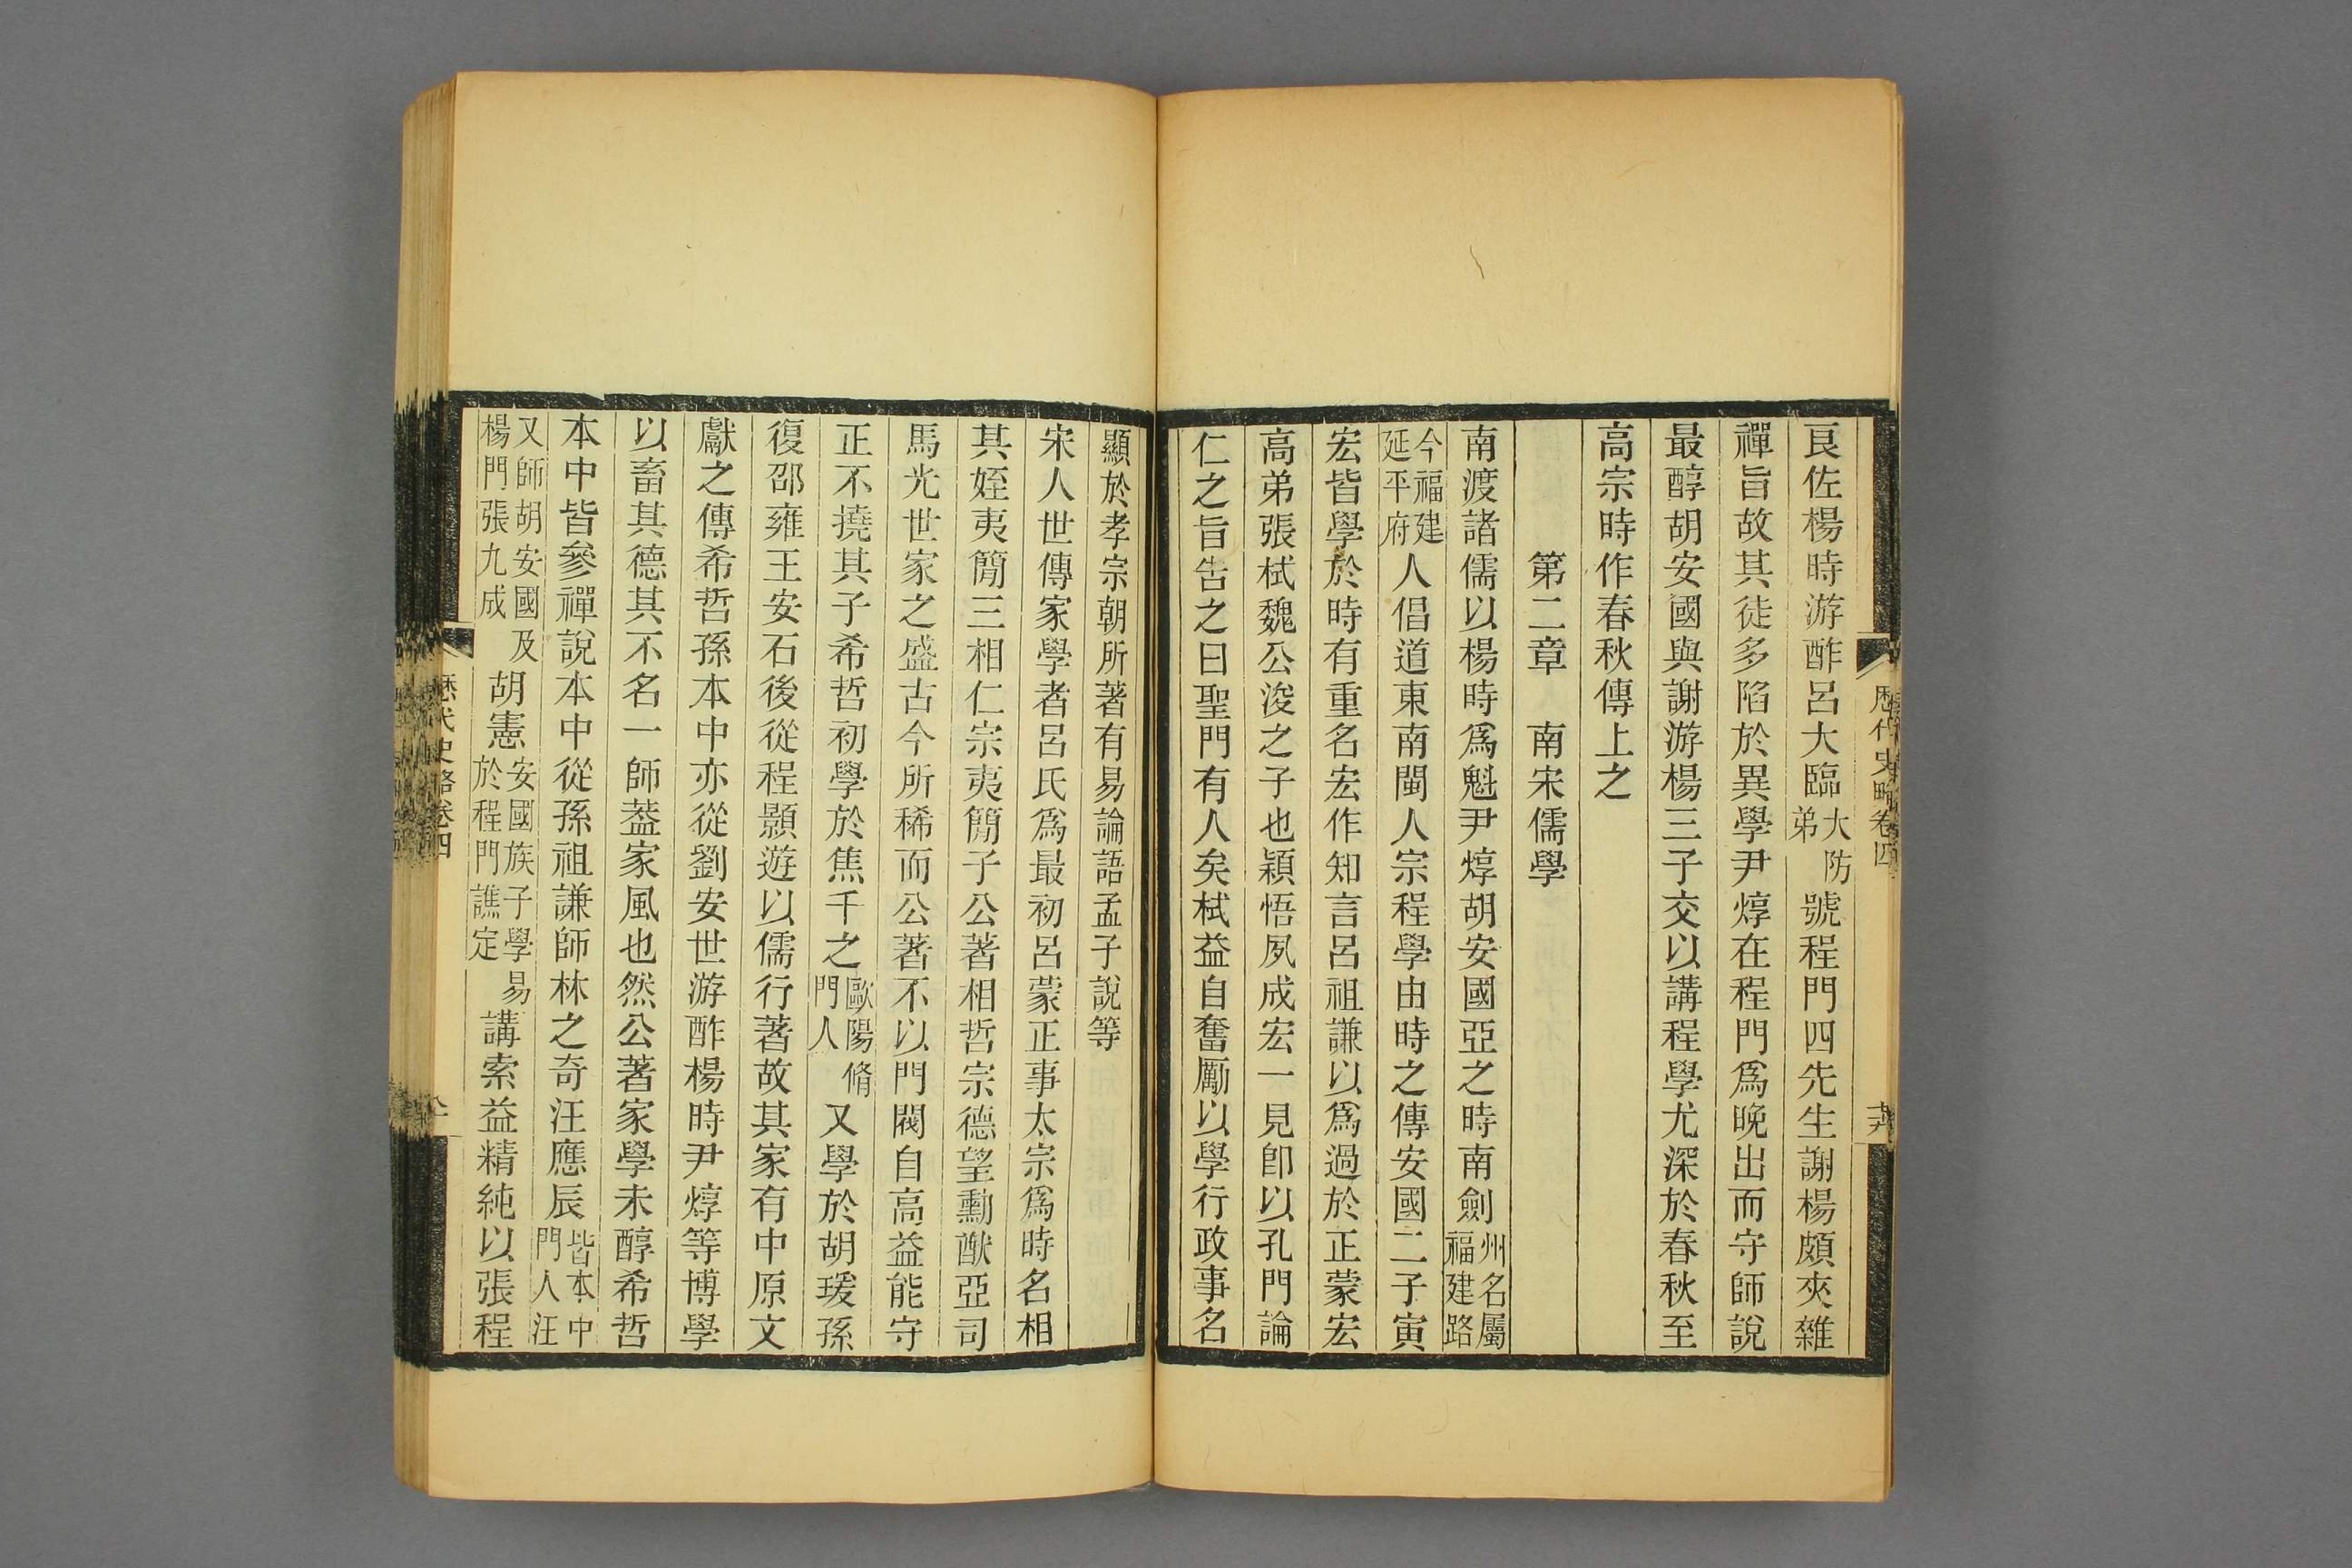 歷代史略卷四
良佐楊時游酢呂大臨大防弟號程門四先生謝楊頗夾雜
禪旨故其徒多陷於異學尹焞在程門爲晚出而守師說
最醇胡安國與謝游楊三子交以講程學尤深於春秋至
高宗時作春秋傳上之
第二章 南宋儒學
南渡諸儒以楊時爲魁尹焞胡安國亞之時南劍州名屬福建路
今福建延平府人倡道東南閩人宗程學由時之傳安國二子寅
宏皆學於時有重名宏作知言呂祖謙以爲過於正蒙宏
高弟張栻魏公浚之子也穎悟夙成宏一見卽以孔門論
仁之旨告之曰聖門有人矣栻益自奮厲以學行政事名
顯於孝宗朝所著有易論語孟子說等
宋人世傳家學者呂氏爲最初呂蒙正事太宗爲時名相
其姪夷簡三相仁宗夷簡子公著相哲宗德望勳猷亞司
馬光世家之盛古今所稀而公著不以門閥自高益能守
正不撓其子希哲初學於焦千之歐陽脩門人又學於胡瑗孫
復邵雍王安石後從程顥遊以儒行著故其家有中原文
獻之傳希哲孫本中亦從劉安世游酢楊時尹焞等博學
以畜其德其不名一師葢家風也然公著家學未醇希哲
本中皆參禪說本中從孫祖謙師林之奇汪應辰皆本中門人汪
又師胡安國及楊門張九成胡憲安國族子學易於程門譙定講索益精純以張程
歷代史略卷四